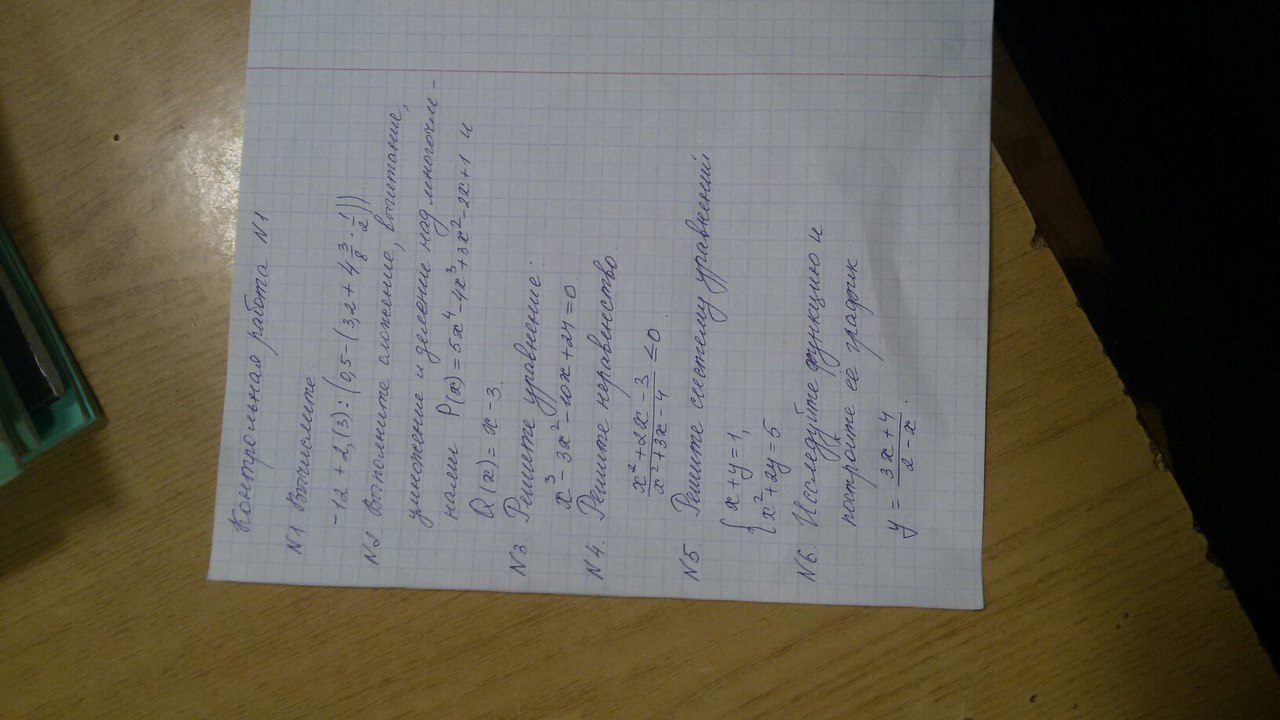 Контрольная работа N1
N1 Вычислите
-12 + 2,(3) : (0,5 - (3,2 + 4 3/8 · 1/2))
N2 Выполните сложение, вычитание,
умножение и деление над многочле-
нами P(x) = 5x⁴ - 4x³ + 3x² - 2x + 1 и
Q(x) = x - 3.
N3 Решите уравнение:
x³ - 3x² - 10x + 24 = 0.
N4. Решите неравенство
(x² + 2x - 3)/(x² + 3x - 4) ≤ 0.
N5. Решите систему уравнений
{ x + y = 1,
x² + 2y = 5
N6. Исследуйте функцию и
постройте её график
y = (3x + 4)/(2 - x).